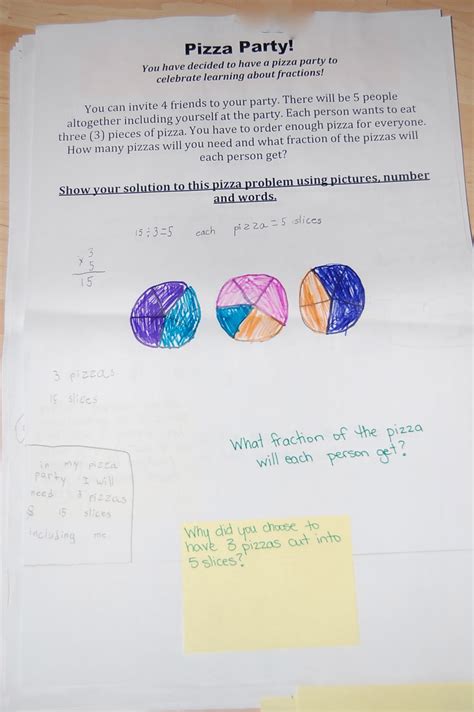 Pizza Party!
You have decided to have a pizza party to
celebrate learning about fractions!
You can invite 4 friends to your party. There will be 5 people
altogether including yourself at the party. Each person wants to eat
three (3) pieces of pizza. You have to order enough pizza for everyone.
How many pizzas will you need and what fraction of the pizzas will
each person get?
Show your solution to this pizza problem using pictures, number
and words.
15÷3=5 each pizza=5 slices
3
x 5
15
3 pizzas
15 slices
What fraction of the pizza
will each person get?
in my pizza
party I will
need 3 pizzas
& 15 slices
including me
Why did you choose to
have 3 pizzas cut into
5 slices?